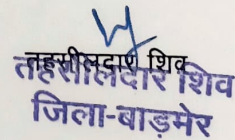 तहसीलदार शिव
तहसीलदार शिव
जिला-बाड़मेर